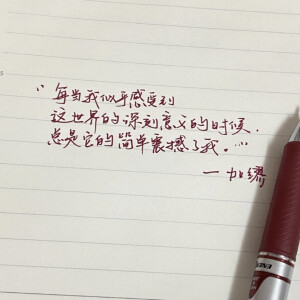 “每当我似乎感受到
这世界的深刻意义的时候,
总是它的简单震撼了我。…”
— 加缪